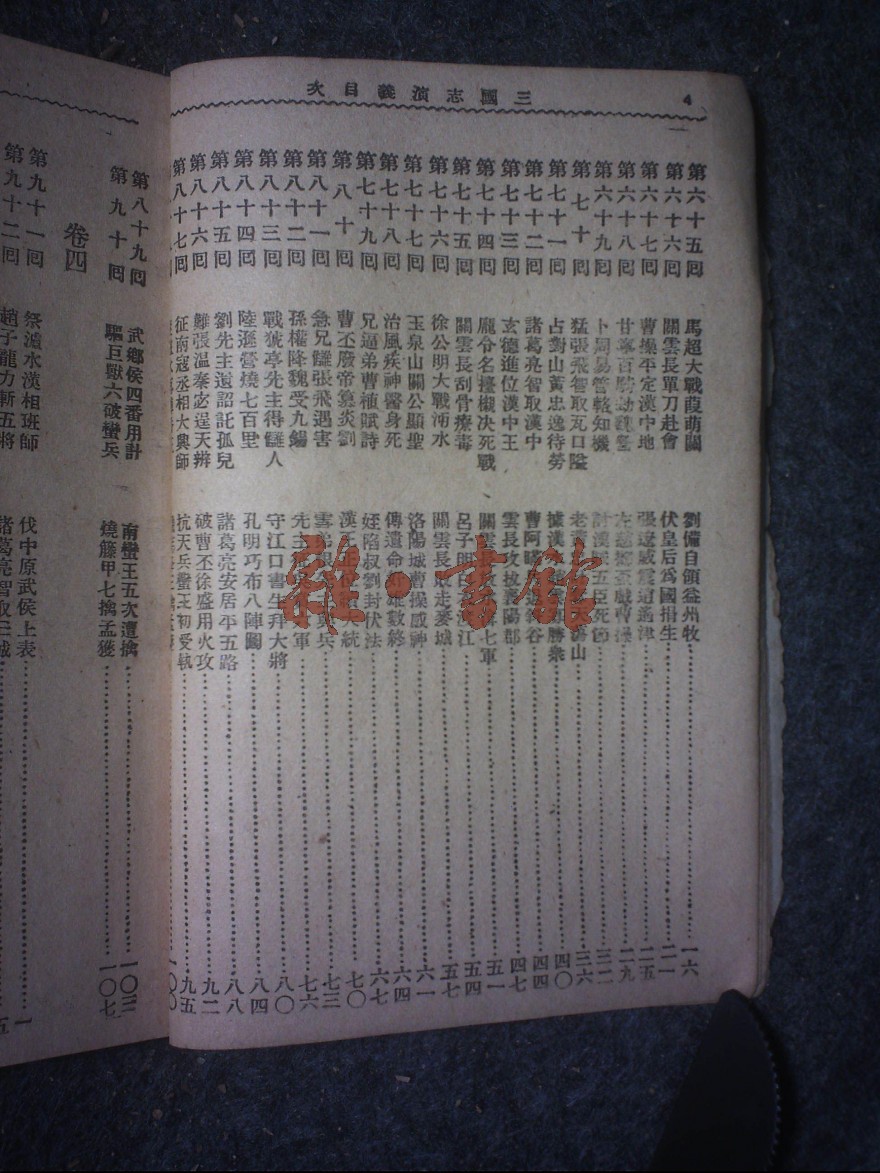 三國志演義目次 4
第六十五回 馬超大戰葭萌關 劉備自領益州牧 一六
第六十六回 關雲長單刀赴會 伏皇后爲國捐生 二一
第六十七回 曹操平定漢中地 張遼威震逍遙津 二五
第六十八回 甘寧百騎劫魏營 左慈擲盃戲曹操 二九
第六十九回 卜周易管輅知機 討漢賊五臣死節 三二
第七十回 猛張飛智取瓦口隘 老黃忠 天蕩山 三六
第七十一回 占對山黃忠逸待勞 據漢 勝衆 四〇
第七十二回 諸葛亮智取漢中 曹阿瞞 斜谷 四四
第七十三回 玄德進位漢中王 雲長攻拔襄陽郡 四七
第七十四回 龐令名擡櫬決死戰 關雲長 七軍 五一
第七十五回 關雲長刮骨療毒 呂子明白 江 五四
第七十六回 徐公明大戰沔水 關雲長 走麥城 五七
第七十七回 玉泉山關公顯聖 洛陽城曹操感神 六一
第七十八回 治風疾神醫身死 傳遺命 數終 六四
第七十九回 兄逼弟曹植賦詩 姪陷叔劉封伏法 六七
第八十回 曹丕廢帝篡炎劉 漢王 統 七〇
第八十一回 急兄讎張飛遇害 雪弟恨 兵 七三
第八十二回 孫權降魏受九錫 先主 軍 七六
第八十三回 戰猇亭先主得讎人 守江口書生拜大將 八〇
第八十四回 陸遜營燒七百里 孔明巧布八陣圖 八四
第八十五回 劉先主遺詔託孤兒 諸葛亮安居平五路 八八
第八十六回 難張温秦宓逞天辨 破曹丕徐盛用火攻 九二
第八十七回 征南寇丞相大興師 抗天兵蠻王初受執 九五
一〇〇
第八十九回 武鄉侯四番用計 南蠻王五次遭擒 一〇三
第九十回 驅巨獸六破蠻兵 燒籐甲七擒孟獲 一〇七
卷四
第九十一回 祭瀘水漢相班師 伐中原武侯上表 一
第九十二回 趙子龍力斬五將 諸葛亮智取三城 五
雜·書館